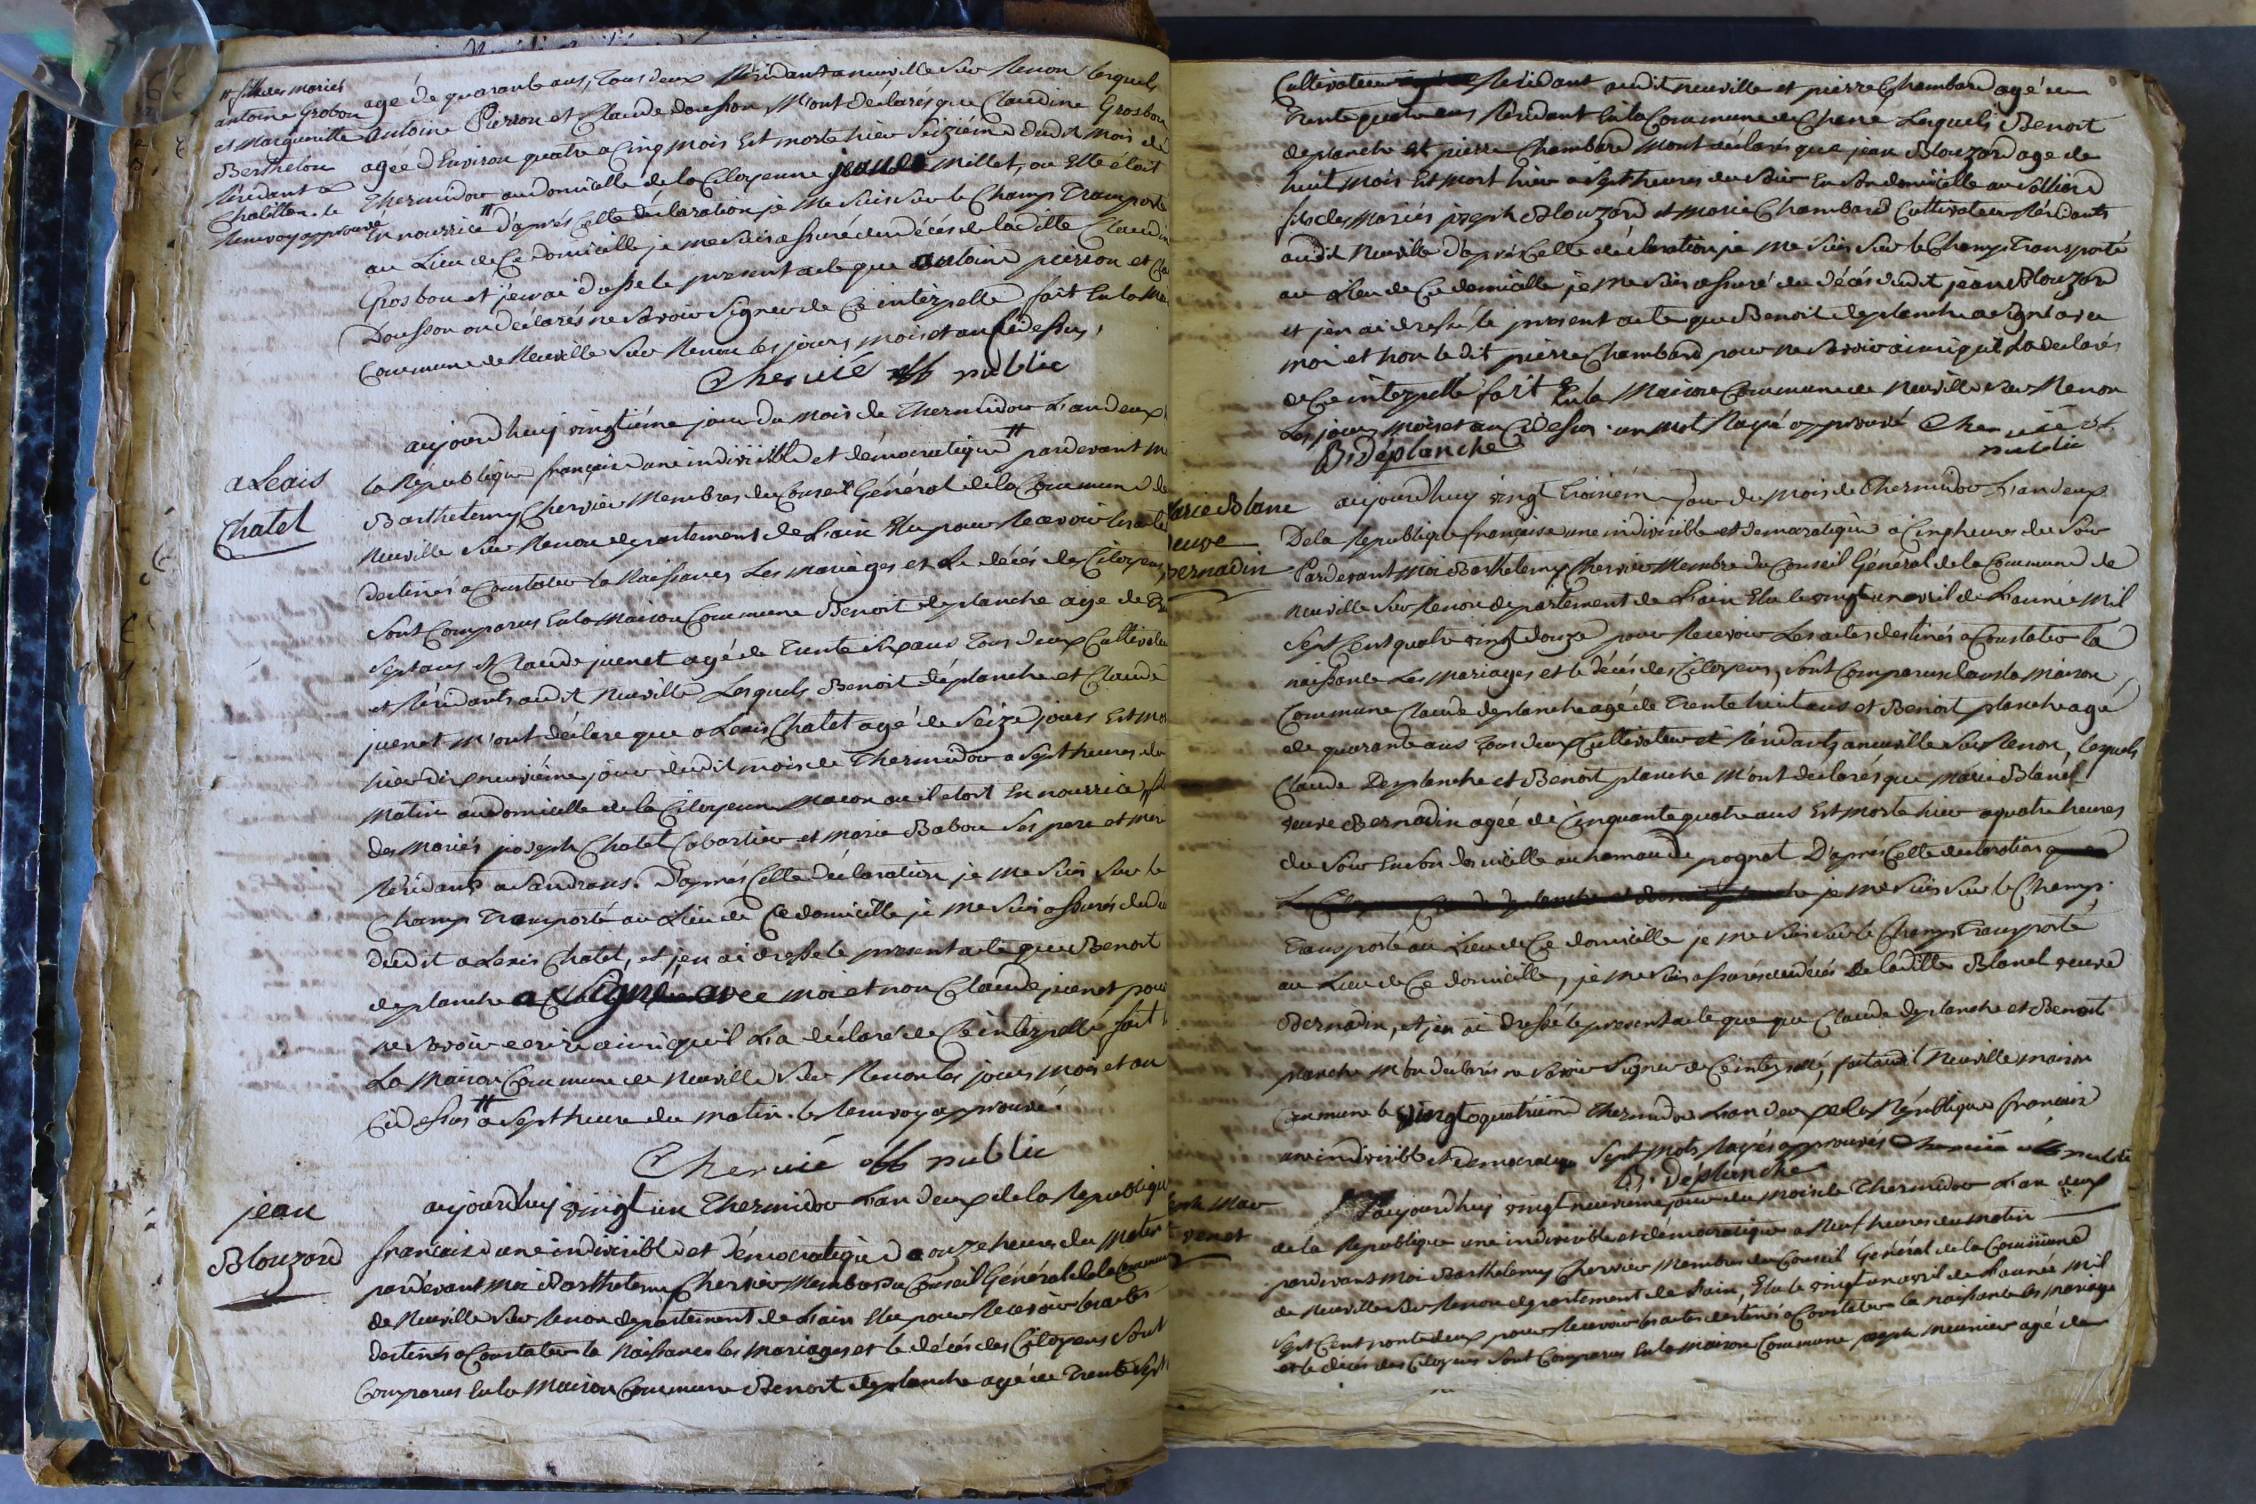 # fille des mariés
antoine Grobon
et Marguerite
Berthelon
Résidant a
Chatillon. le
Renvoy approuvé
agé de quarante ans, Tous deux Résidant a neuville sur Renon lesquels
antoine Pierron et Claude dousson M'ont déclarés que Claudine Grosbon
agée d'Environ quatre a Cinq mois Est morte hier Seiziéme dudit mois de
Thermidor au domicille de la Citoyenne Millet, ou Elle étoit
En nourrice # d'aprés Cette déclaration je Me Suis Sur le Champ Transporté
au Lieu de Ce domicille je me Suis assuré du décés de la ditte Claudin
Grosbon et j'en ai dressé le present acte que antoine pierron et Cla
Dousson on déclarés ne Savoir Signer de Ce intérpellé fait En la Mai
Commune de Neuville Sur Renon les jours mois et an Cidessus,
Chervié off public
aLexis
Chatel
aujourd'huy vingtiéme jour du mois de Thermidor L'an deux
la République françaisse une indivisible et démocratique # pardevant M
Barthelemy Chervier Membres du Conseil Général de la Commune de
Neuville Sur Renon département de L'ain Elu pour Recevoir les acte
destinés a Constater la Naissances Les Mariages et Le décés des Citoyens,
Sont Comparus En la Maison Commune Benoit deplanche agé de
Sept ans et Claude juenet agé de Trente Six ans Tous deux Cultivateu
et Résidants audit Neuville Lesquels Benoit déplanche et Claude
juenet M'ont déclare que aLexis Chatel agé de Seize jours Est mo
hier dix neuviéme jour dudit mois de Thermidor a Sept heures du
Matin au domicille de la Citoyenne Macon ou il étoit En nourrice,
des Mariés joseph Chatel Cabartier et Marie Babou Ses pere et mere
Résidants a Sandrans. D'aprés Cette déclaration je Me Suis Sur le
Champ Transporté au Lieu de Ce domicille je Me Suis assurés du dé
dudit aLexis Chatel, et j'en ai dressé le present acte que Benoit
deplanche a Signé avec moi et non Claude juenet pour
ne Savoir ecrire ainsi qu'il L'a déclaré de Ce interpellé fait
La Maison Commune de Neuville Sur Renon les jours Mois et an
Cidessus # a Sept heure du matin. le Renvoy approuvé.
Chervié off public
jean
Blouzard
aujourd'huy vingt un Thermidor L'an deux de la Republique
française une indivisible et démocratique a onze heures du Matin
pardevant Moi Barthelemy Chervier Membres du Conseil Général de la Commune
de Neuville Sur Renon département de L'ain Elu pour Recevoir les actes
destinés a Constater la Naissances les Mariages et le décés des Citoyens Sont
Comparus En la Maison Commune Benoit deplanche agé de Trente Sept
Cultivateur Résidant audit neuville et pierre Chambard agé de
Trente quatre ans Résidant En la Commune de Lesquels Benoit
deplanche et pierre Chambard M'ont déclarés que jean Blouzard agé de
huit Mois Est Mort hier a Sept heures du Soir En Son domicille au
fils des Mariés joseph Blouzard et Marie Chambard Cultivateur Résidants
audit Neuville d'aprés Cette déclaration je Me Suis Sur le Champ Transporté
au Lieu de Ce domicille je Me Suis assuré du décés dudit jean Blouzard
et j'en ai dressé le present acte que Benoit deplanche a Signé avec
moi et non le dit pierre Chambard pour ne Savoir ainsi qu'il L'a déclarés
de Ce interpellé fait En la Maison Commune de Neuville Sur Renon
Les jours Mois et an Cidessus. un mot Rayé approuvé Chervié off
B. déplanche public
Marie Blanc
veuve
Bernadin
aujourd'huy vingt troisiém jour du mois de Thermidor L'an deux
De la République française une indivisible et démocratique a Cinq heures du Soir
Pardevant Moi Barthelemy Chervier Membre du Conseil Général de la Commune de
Neuville Sur Renon département de L'ain Elu le vingt un avril de L'année Mil
Sept Cent quatre vingt douze pour Recevoir Les actes destinés a Constater la
naissance Les Mariages et le décés des Citoyens, Sont Comparus dans la Maison
Commune Claude deplanche agé de Trente huit ans et Benoit planche agé
de quarante ans Tous deux Cultivateur et Résidants a neuville Sur Renon, lesquels
Claude Deplanche et Benoit planche M'ont déclarés que Marie Blanc
veuve Bernadin agée de Cinquante quatre ans Est Morte hier a quatre heures
du Soir En Son domicille au hamau de pognat D'aprés Cette déclaration
je Me Suis Sur le Champ
Transporté au Lieu de Ce domicille je Me Suis Sur le Champ Transporté
au Lieu de Ce domicille, je Me Suis assurés du décés de laditte Blanc veuve
Bernadin, et j'en ai dressé le present acte que que Claude deplanche et Benoit
planche M'on declarés ne Savoir Signer de Ce interpellé, fait audit Neuville maison
Commune le vingt quatriéme Thermidor L'an deux de la République française
une indivisible et democratique Sept Mots Rayés approuvés Chervié off public
B. Déplanche
aujourd'huy vingt neuvieme jour du mois de Thermidor L'an deux
de la République une indivisible et démocratique a Neuf heures du matin
pardevant Moi Barthelemy Chervier Membres du Conseil Général de la Commune
de Neuville Sur Renon département de L'ain, Elu le vingt un avril de L'année Mil
Sept Cent nonte deux pour Recevoir les actes destinés a Constater la naissance les Mariage
et le décés des Citoyens Sont Comparus En la Maison Commune joseph Meunier agé de